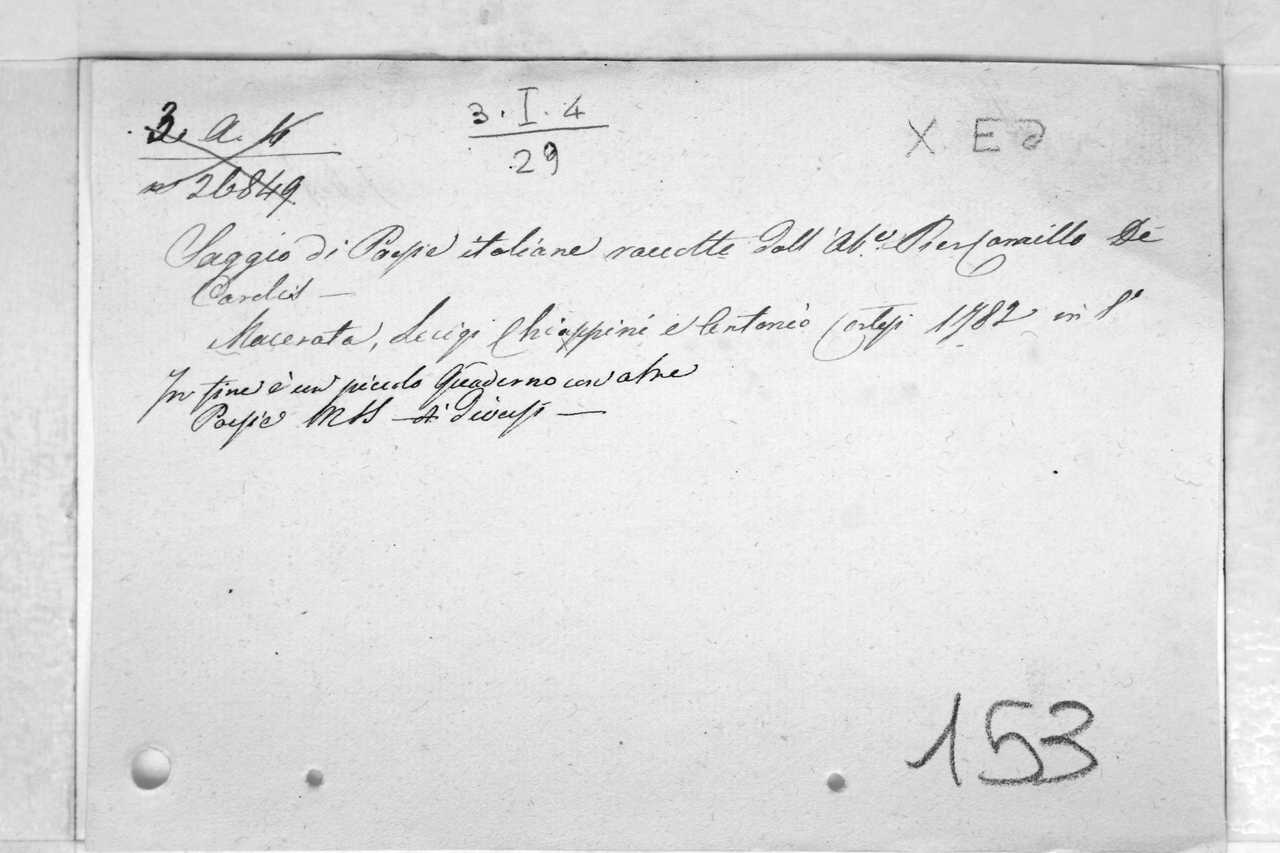 3. A. 4
3. I. 4
X E
n° 26849
29
Saggio di Poesie italiane raccolte dall'Ab.e Piercamillo De
Carolis —
Macerata, Luigi Chiappini e Antonio Cortesi 1782 in 8°
In fine è un piccolo Quaderno con altre
Poesie MSS — di diversi —
153